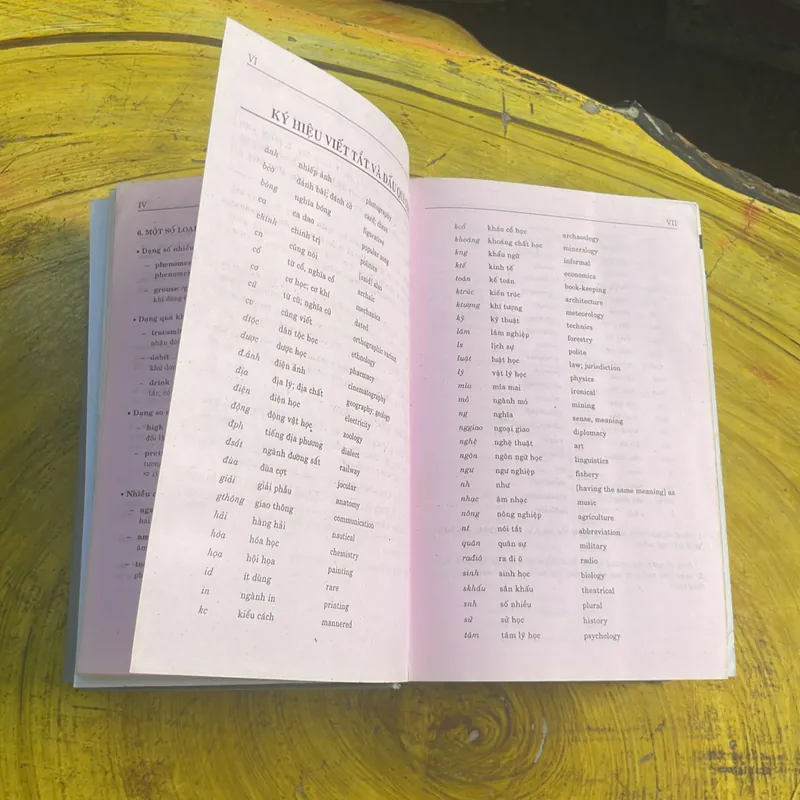 IV
6. MỘT SỐ LOẠI
• Dạng số nhiều
– phenomen
phenomen
– grouse
khi dùng
• Dạng quá kh
– transmit
nhận đôi
– debit
– drink
• Dạng so s
– high
– pret
• Nhiều c
VI
KÝ HIỆU VIẾT TẮT VÀ DẤU
ảnh nhiếp ảnh photography
bcờ đánh bài; đánh cờ card; chess
bóng nghĩa bóng figurative
cd ca dao popular song
chính chính trị politics
cn cũng nói [said] also
cổ từ cổ, nghĩa cổ archaic
cơ cơ học; cơ khí mechanics
cũ từ cũ; nghĩa cũ dated
cv cũng viết orthographic variant
dtộc dân tộc học ethnology
dược dược học pharmacy
đ.ảnh điện ảnh cinematography
địa địa lý; địa chất geography, geology
điện điện học electricity
động động vật học zoology
đph tiếng địa phương dialect
đsắt ngành đường sắt railway
đùa đùa cợt jocular
giải giải phẫu anatomy
gthông giao thông communication
hải hàng hải nautical
hóa hóa học chemistry
họa hội họa painting
id ít dùng rare
in ngành in printing
kc kiểu cách mannered
VII
kcổ khảo cổ học archaeology
khoáng khoáng chất học mineralogy
kng khẩu ngữ informal
ktế kinh tế economics
toán kế toán book-keeping
ktrúc kiến trúc architecture
ktượng khí tượng meteorology
kỹ kỹ thuật technics
lâm lâm nghiệp forestry
ls lịch sự polite
luật luật học law; jurisdiction
lý vật lý học physics
mỉa mỉa mai ironical
mỏ ngành mỏ mining
ng nghĩa sense, meaning
nggiao ngoại giao diplomacy
nghệ nghệ thuật art
ngôn ngôn ngữ học linguistics
ngư ngư nghiệp fishery
nh như [having the same meaning] as
nhạc âm nhạc music
nông nông nghiệp agriculture
nt nói tắt abbreviation
quân quân sự military
rađiô ra đi ô radio
sinh sinh học biology
skhấu sân khấu theatrical
snh số nhiều plural
sử sử học history
tâm tâm lý học psychology